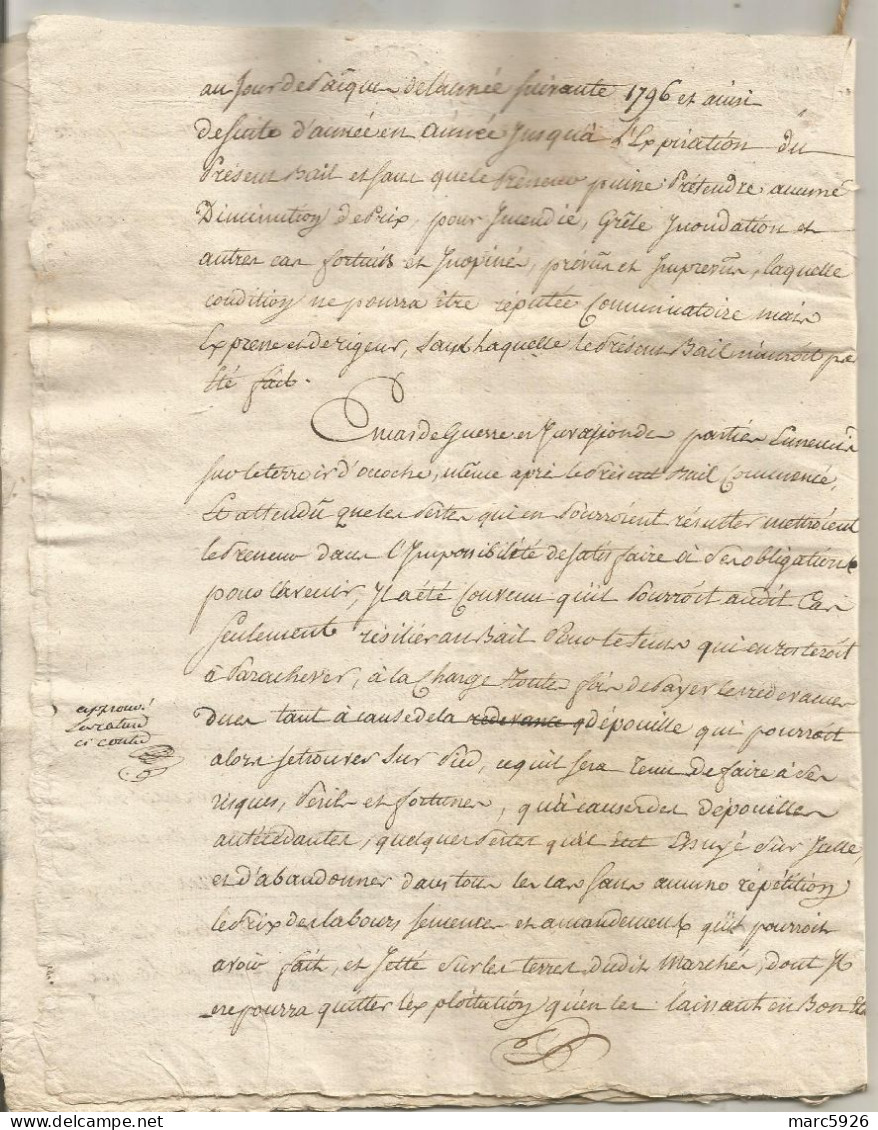 au Jour de Pâques de l'année suivante 1796 et ainsi
de suite d'année en année Jusqu'à l'Expiration du
Présent Bail et sans que le Preneur puisse Prétendre aucune
Diminution de Prix, pour Incendie, Grêle Inondation et
autres cas fortuits et Inopinés, prévus et Imprévus, laquelle
condition ne pourra être réputée Comminatoire mais
Expresse et de rigueur, sans laquelle le Présent Bail n'auroit pas
Eté fait.
En cas de Guerre et Invasion de la partie Ennemie
sur le terroir d'ocoche, même après le Présent Bail Commencé,
Et attendu que les Pertes qui en Pourroient résulter mettroient
le Preneur dans l'Impossibilité de satisfaire à Ses obligations
pour l'avenir, Il a été Convenu qu'il Pourroit audit Cas
seulement résilier au Bail Pour le tems qui en resteroit
à Parachever, à la Charge toutes fois de Payer les redevances
dues tant à cause de la redevance dépouille qui pourroit
approuvé
la rature
ci contre
alors se trouver sur Pied, ce qu'il sera tenu de faire à Ses
risques, Périls et fortunes, qu'à cause des dépouilles
antécédantes, quelques Pertes qu'il eut Essuyé Sur Icelle,
et d'abandonner dans tous les cas sans aucune répétition
le Prix des labours semences et amandements qu'il pourroit
avoir fait, et Jetté Sur les terres dudit Marché, dont Il
ne pourra quitter l'exploitation qu'en les laissant en Bon Eta
marc5926